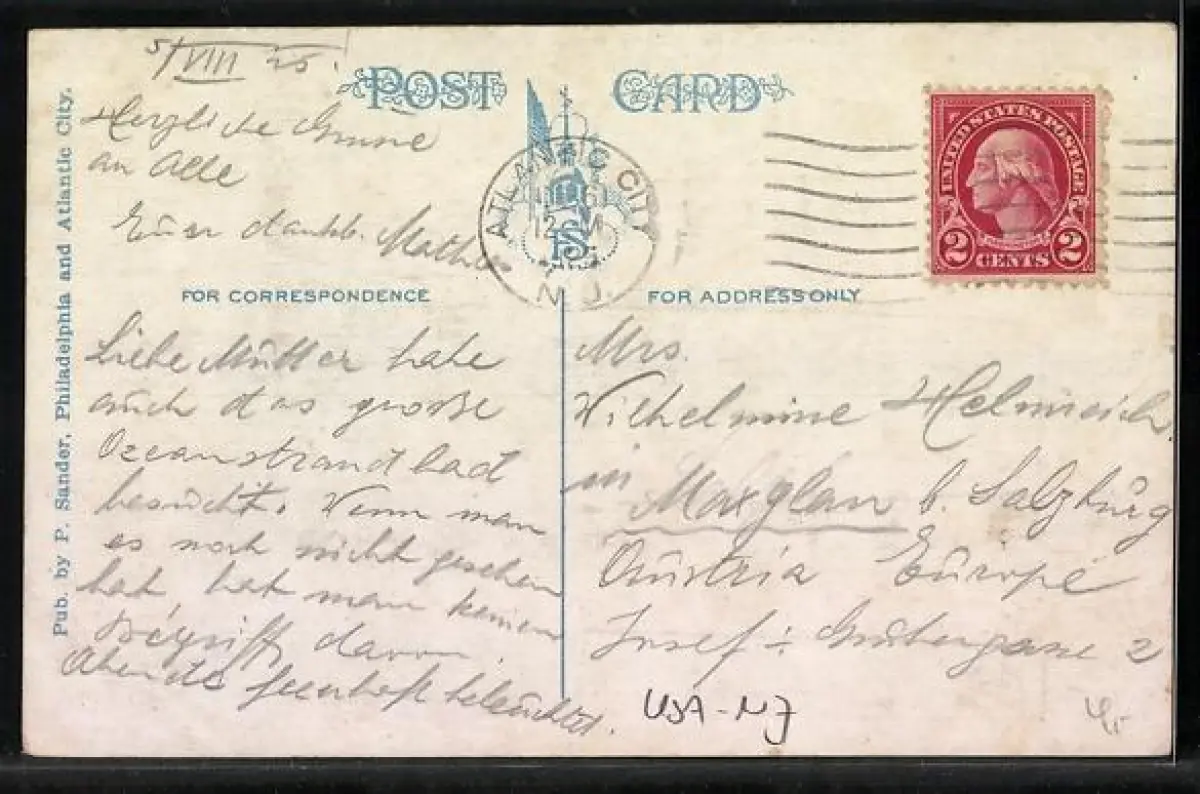 5/VIII 25.
POST CARD
Herzliche Grüsse
an Alle
Euer dankb. Mathias
ATLANTIC CITY
12 M
N.J.
PS
UNITED STATES POSTAGE
2 CENTS 2
FOR CORRESPONDENCE
FOR ADDRESS ONLY
Pub. by P. Sander, Philadelphia and Atlantic City.
Liebe Mutter habe
auch das große
Ozeanstrandbad
besucht. Wenn man
es noch nicht gesehen
hat, hat man keinen
Begriff davon.
Abends feenhaft beleuchtet.
Mrs.
Wilhelmine Helmreich
in Maxglan b. Salzburg
Austria Europe
Josef
2
USA-NJ